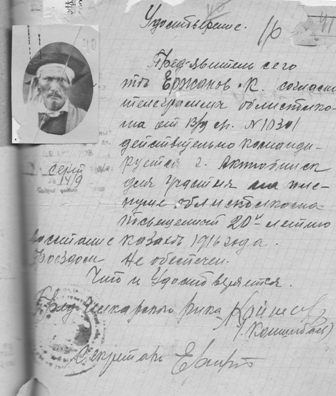 Удостоверение.
Предъявитель сего
тов Ержанов К. согласно
телеграмма облисполко-
ма от 13/9 м. N 1034
действительно команди-
руется г. Актюбинск
для участия на пле-
нуме облисполкома
посвященой 20и летию
восстание казаев 1916 года.
Проездом не обеспечен.
Что и удостоверяется.
Пред. Рика
Секретарь